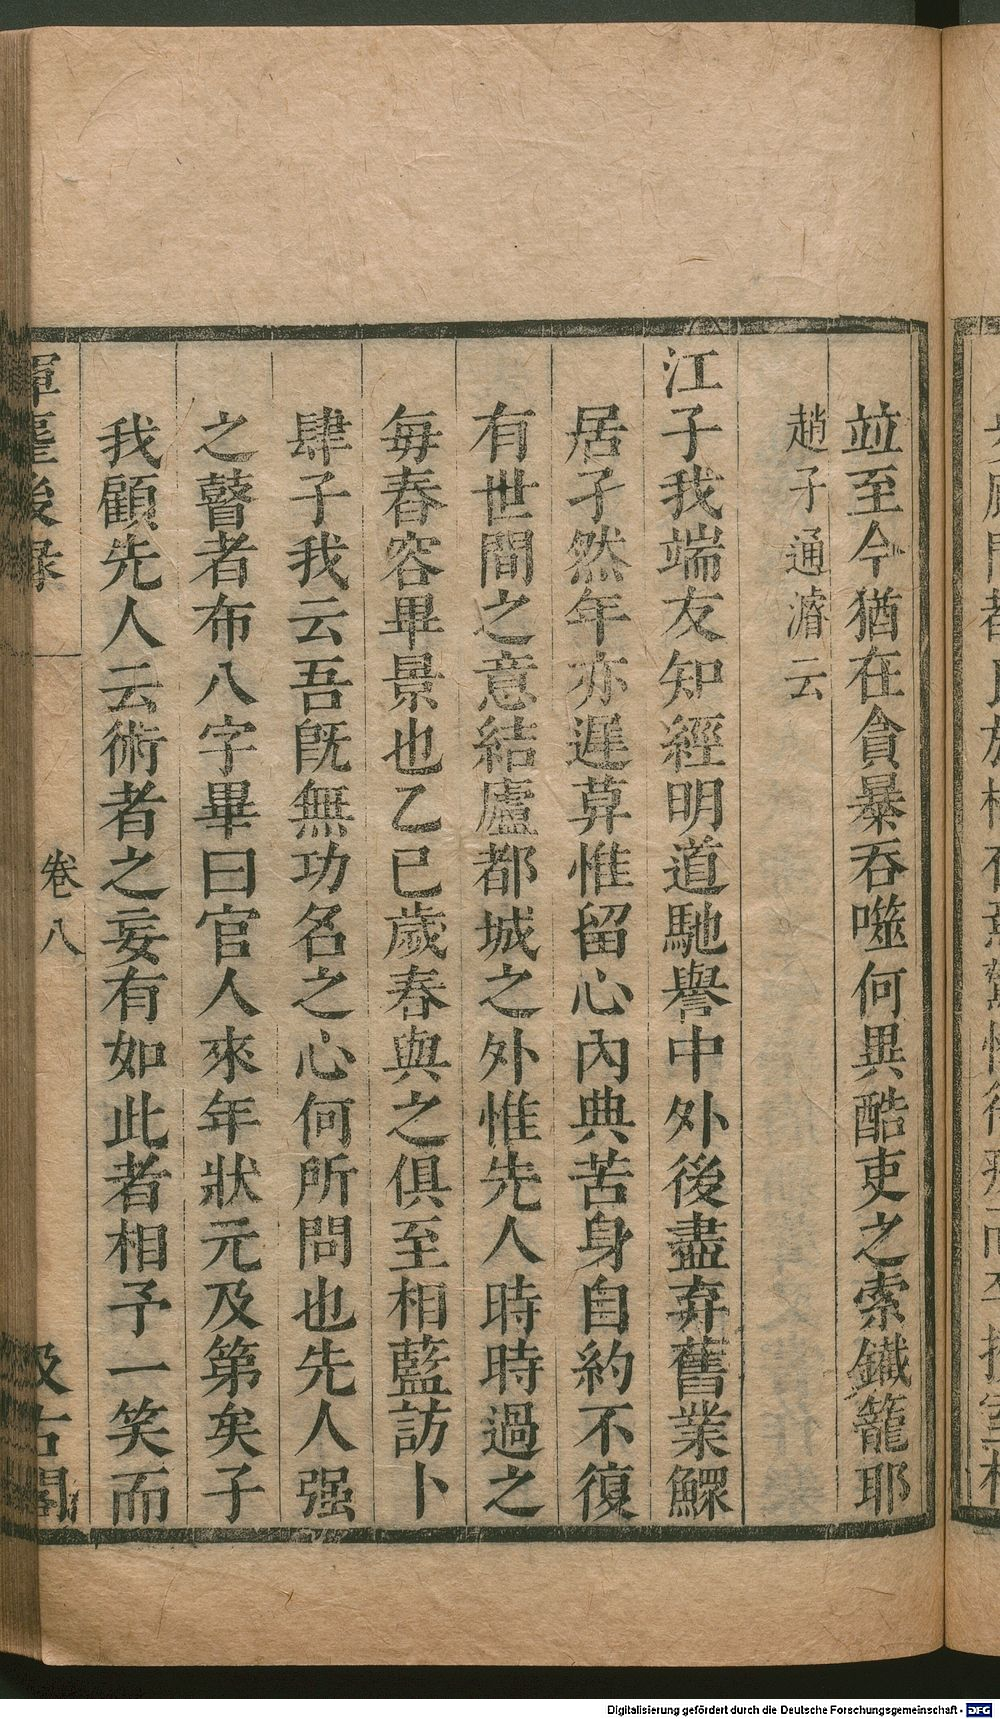 竝至今猶在貪暴吞噬何異酷吏之索鐵籠耶
趙子通濬云
江子我端友知經明道馳譽中外後盡弃舊業鰥
居孑然年亦遲莫惟留心內典苦身自約不復
有世間之意結廬都城之外惟先人時時過之
每春容畢景也乙巳歲春與之俱至相藍訪卜
肆子我云吾既無功名之心何所問也先人强
之瞽者布八字畢曰官人來年狀元及第矣子
我顧先人云術者之妄有如此者相予一笑而
揮麈後錄
卷八
汲古閣
Digitalisierung gefördert durch die Deutsche Forschungsgemeinschaft - DFG